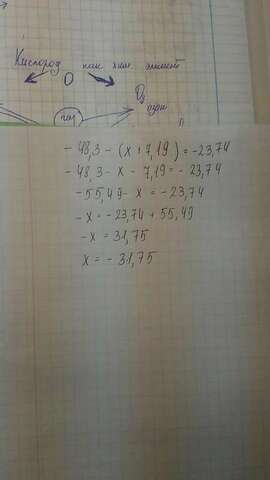 Кислород как хим. элемент
O
O₃
газ
озон
- 48,3 - (x + 7,19) = -23,74
- 48,3 - x - 7,19 = - 23,74
- 55,49 - x = - 23,74
- x = - 23,74 + 55,49
- x = 31,75
x = - 31,75